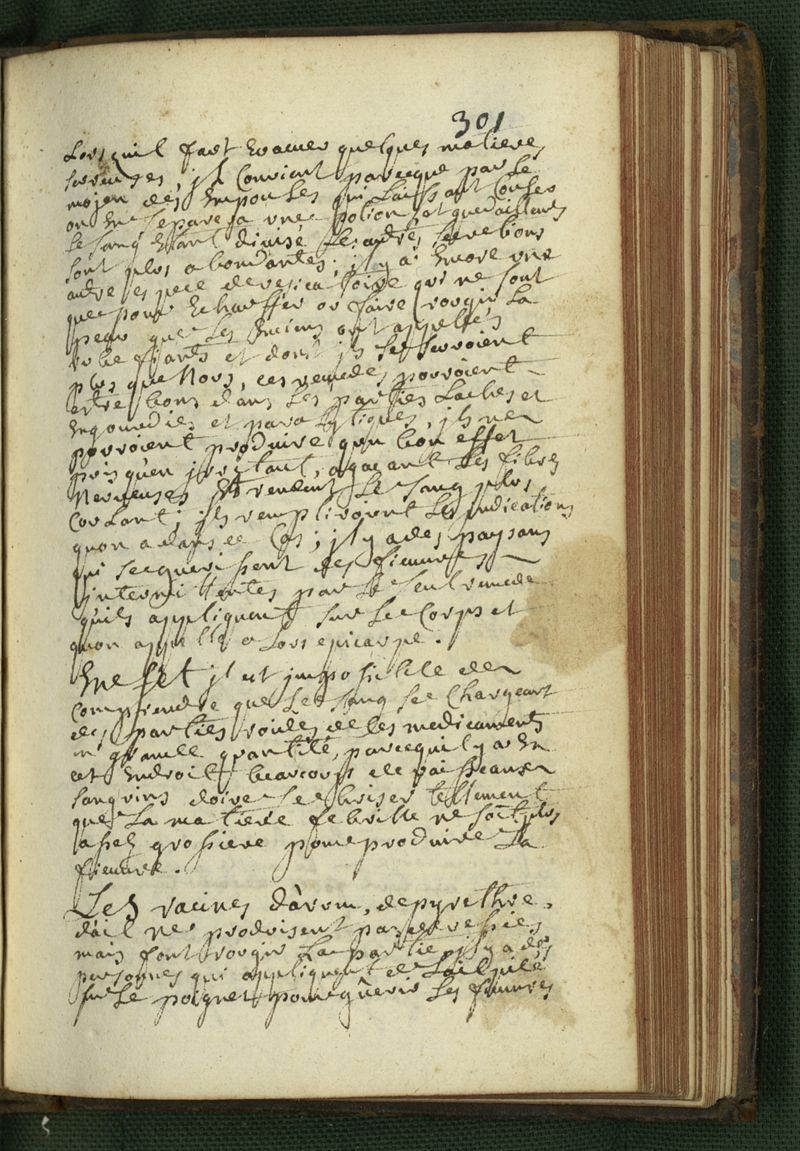 301
Lors quil faut Evacuer quelques matieres
sereuses, jl Convient parceque par le
mojen des Empoules qui Laissant Couler
on En separera une potion et quedailleurs
le sang Etant divisé les autres secretions
sont plus abondantes; jl y a Encore une
autre espece de vesicatoire qui ne sont
que pour Echauffer ou faire rougir La
peau que les Enciens ont appellés
rubefiants et dont jls se servoient
plus que Nous, ces remedes pouroient
estre bons dans Les parties Laches et
Engourdies et paralytiques, jls ne
pouroient produire qun bon effet
puis quen jrritant, agaçant les fibres
Nerveuses Et rendent le sang plus
Coulant; jls rempliroient les jndications
quon a dans ce Cas; jl y a des paysans
qui se guerissent des fieuvres
jntermittantes par le seul remede
quils appliquent sur le Corps et
quon appelle alors epicarpe.
En efet jl est jmpossible de
Comprendre que le sang se Chargeant
des parties de les medicaments
en grande quantité, parcequil y a En
cet Endroit beaucoups de vaisseaux
sanguins doive se briser tellement
que La matiere febrille ne soit plus
assez grossiere pour produire La
fieuvre.
Les racines d'arum, de pyrethre,
d'ail ne produisent pas de vessies
mais font rougir La partie jl y a des
personnes qui appliquent de Lail pilé
sur Le poignet pour guerir Les fieuvres